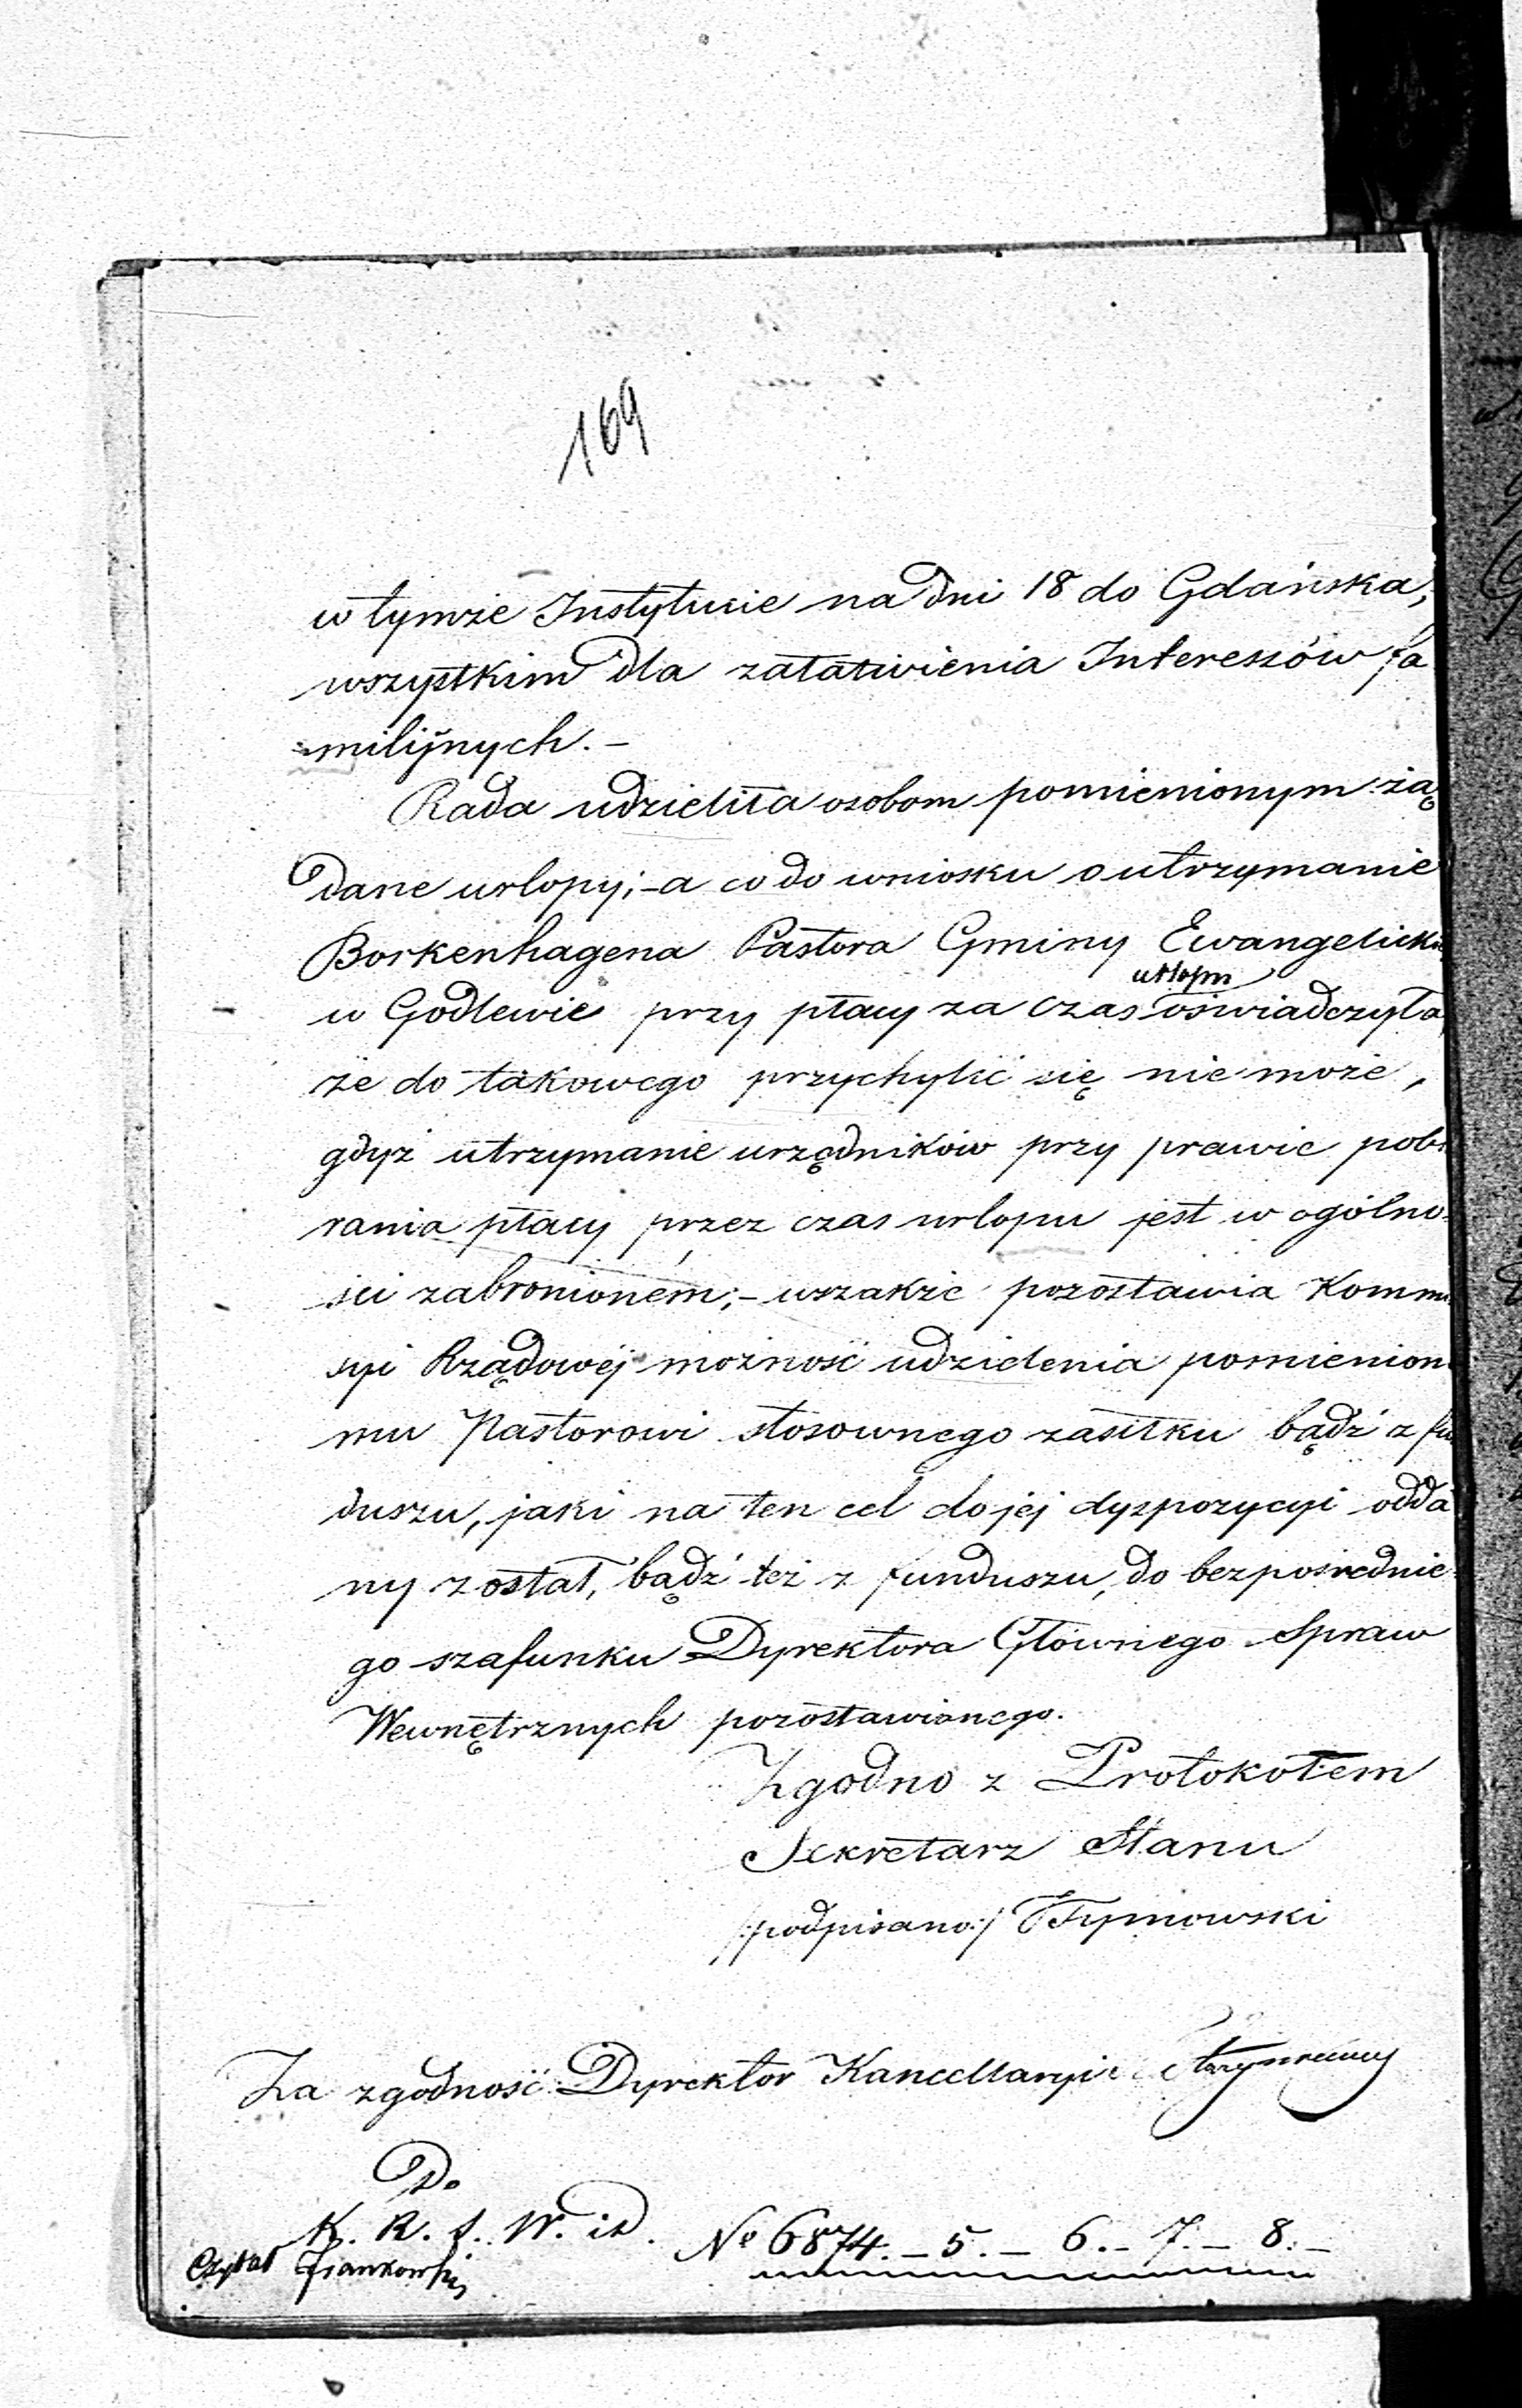 169
w tymże Instytucie na dni 18 do Gdańska,
wszystkim dla załatwienia Interessów fa
milijnych.-
Rada udzieliła osobom pomienionym żą
dane urlopy;- a co do wniosku o utrzymanie
Borkenhagena Pastora Gminy Ewangelickiej
urlopu
w Godlewie przy płacy za czas oświadczyła,
że do takowego przychylić się nie może,
gdyż utrzymanie urzędników przy prawie pobi
rania płacy przez czas urlopu jest w ogólno-
ści zabronioném;- wszakże pozostawia Kommis
syi Rządowéj możność udzielenia pomienione
mu Pastorowi stosownego zasiłku bądź z fun
duszu, jaki na ten cel do jej dyspozycyi odda
ny został, bądź też z funduszu, do bezpośrednie-
go szafunku Dyrektora Głównego Spraw
Wewnętrznych pozostawionego.
Zgodno z Protokołem
Sekretarz Stanu
/:podpisano:/ Tymowski
Za zgodność Dyrektor Kancellaryi
Do
K. R. S. W. i D.
Czytał
No 6874.-5.-6.-7.-8.-